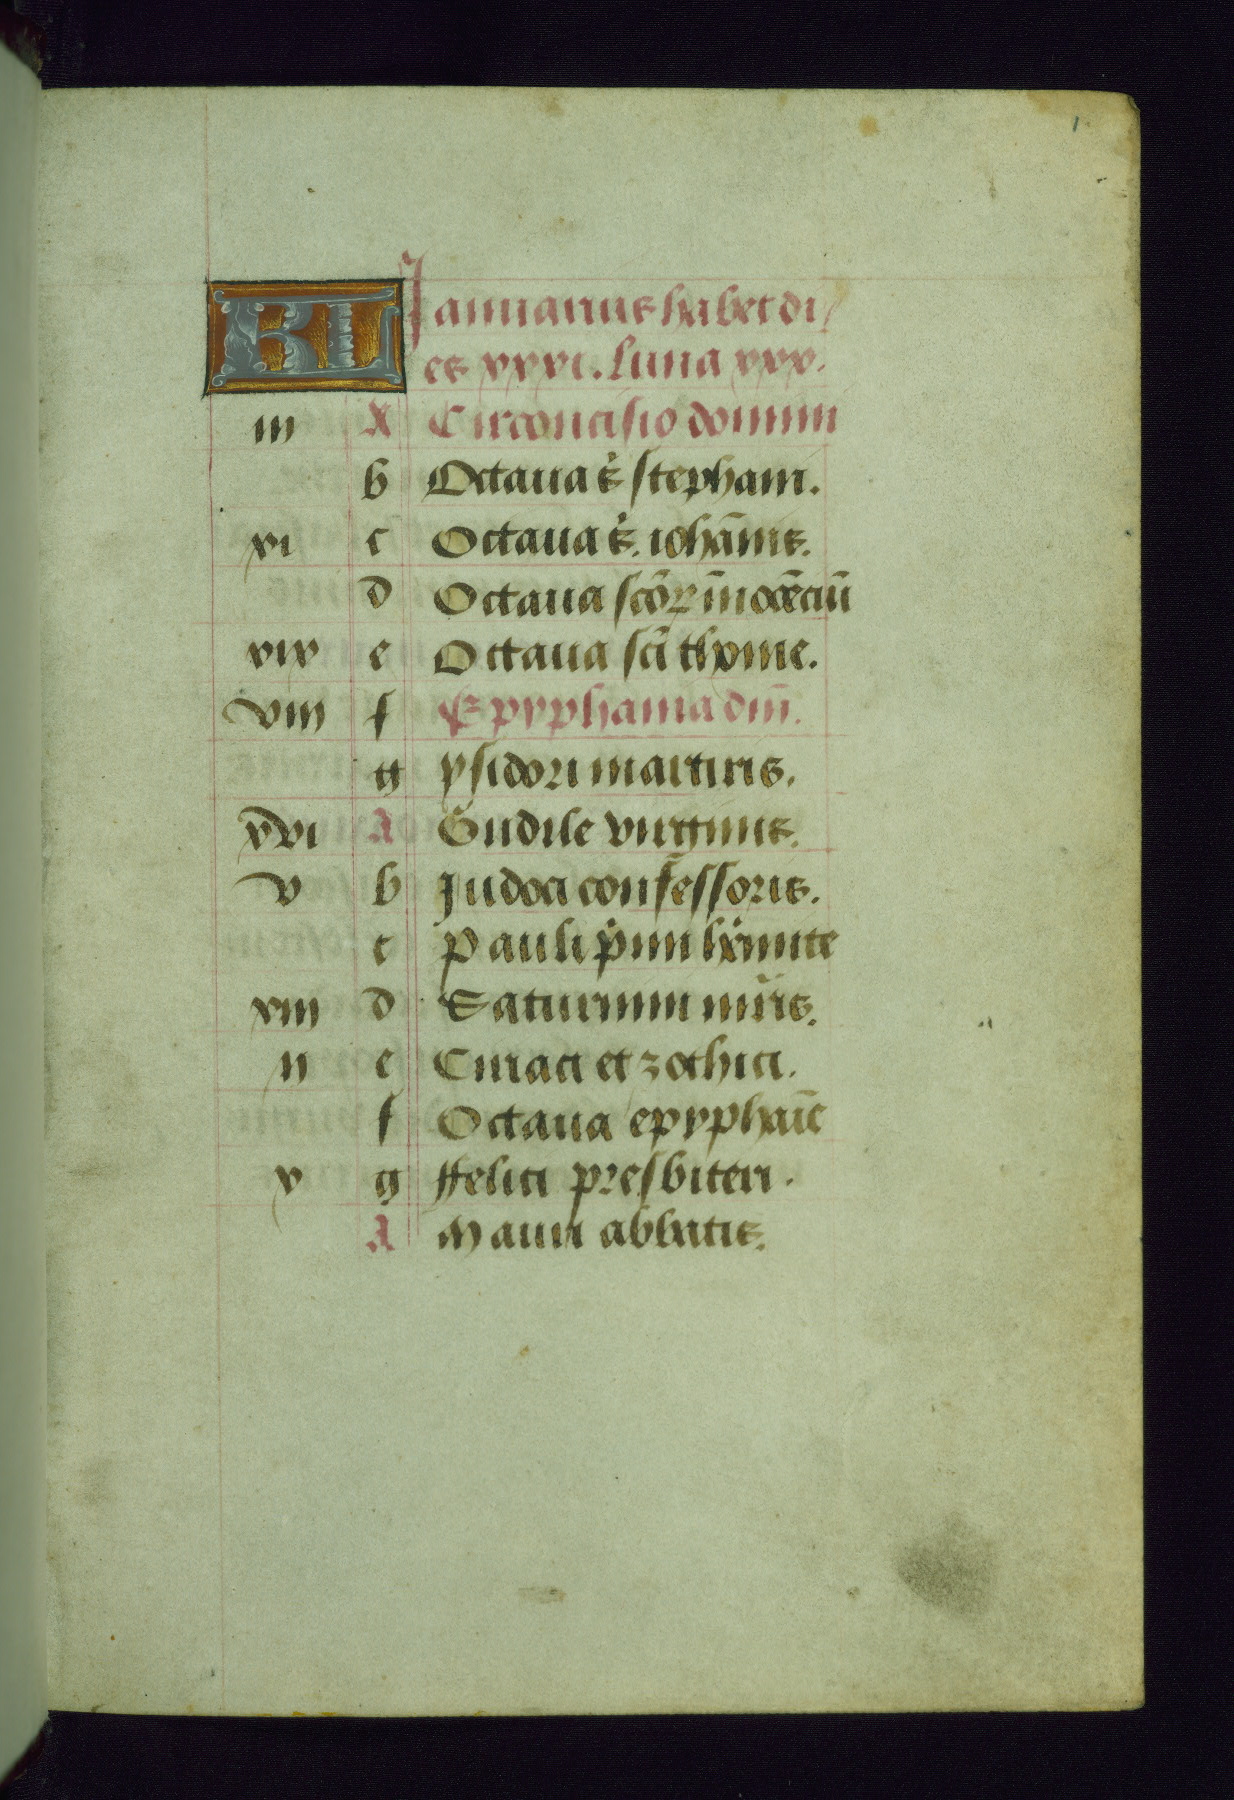 1
KL Januarius habet di/
es xxxi. luna xxx.
iii A Circoncisio domini
b Octaua s̄ stephani.
xi c Octaua s̄. ioha̅nis.
d Octaua sco̅ꝝ i̅noce̅ciu̅
xix e Octaua sc̅i thome.
viii f Epyphania dn̅i.
g ysidori martiris.
xvi A Gudile virginis.
v b Judoci confessoris.
c Pauli p̍mi h̍emite
xiii d Saturnini mr̅is.
ii e Ciriaci et zothici.
f Octaua epyphai̅e
x g ffelici presbiteri.
A Mauri abbatis.